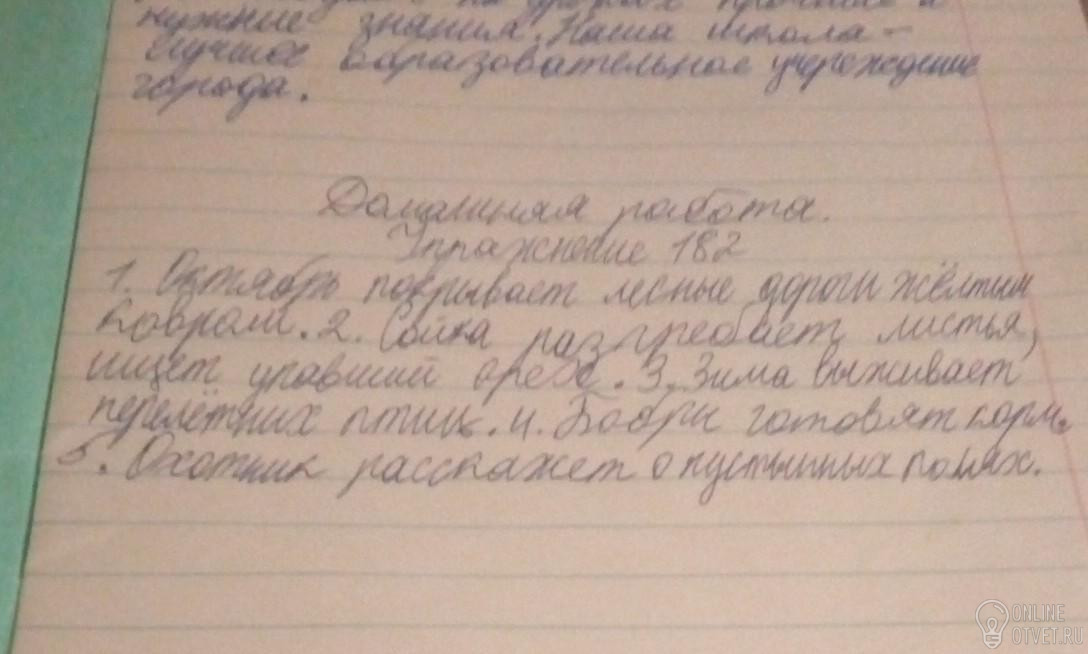 на других прочные и
нужные знания. Наша школа –
лучшое образовательное учереждение
города.
Домашняя работа.
Упражнение 182
1. Октябрь покрывает лесные дороги жёлтым
ковром. 2. Сойка разгребает листья,
ищет упавший орех. 3. Зима выживает
перелётных птиц. 4. Бобры готовят корм.
5. Охотник расскажет о пустынных полях.
ONLINE
OTVET.RU